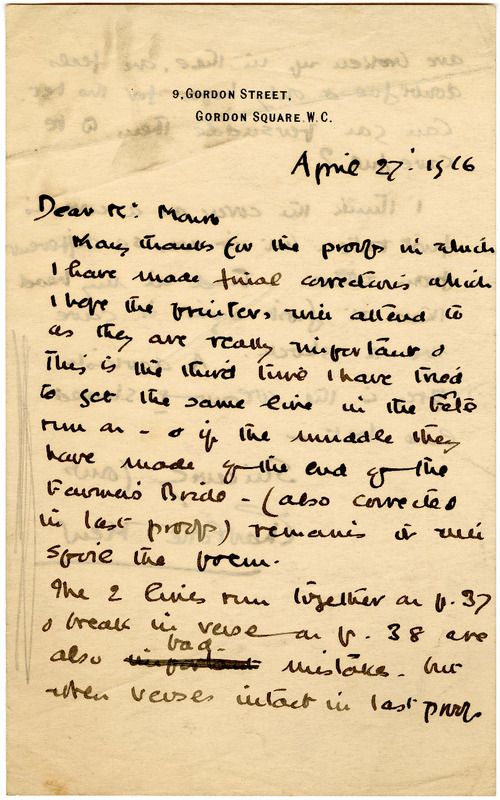 9, GORDON STREET,
GORDON SQUARE. W.C.
April 27: 1916
Dear Mr. Monro
Many thanks for the proofs in which
I have made final corrections which
I hope the printers will attend to
as they are really important &
This is the third time I have tried
to get the same line in the Fête
run on - & if the muddle they
have made of the end of the
Farmer's Bride - (also corrected
in last proofs) remains it will
spoil the poem.
The 2 lines run together on p. 37
& break in verse on p. 38 are
also bad mistakes - but
when verses intact in last proofs